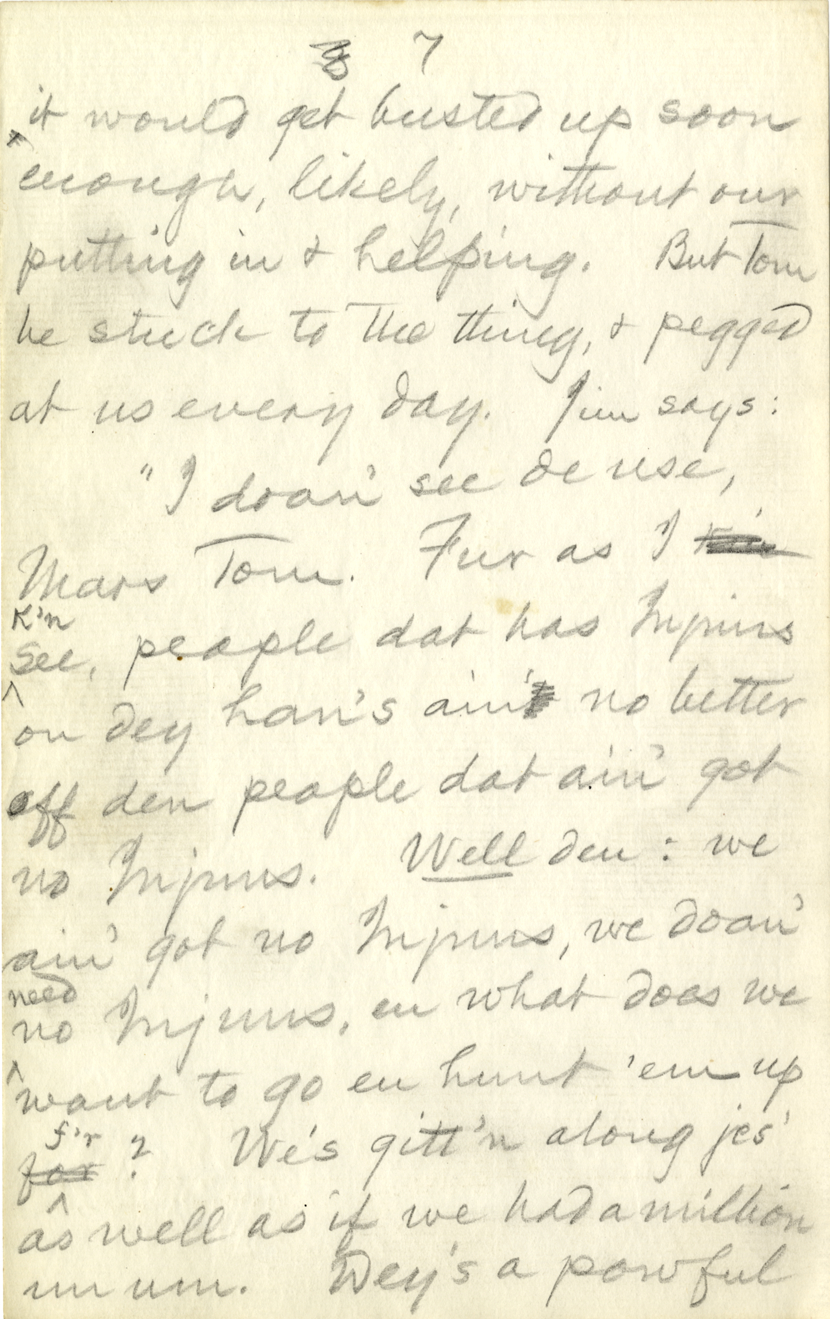 7
it would get busted up soon
enough, likely, without our
putting in & helping. But Tom
he stuck to the thing, & pegged
at us every day. Jim says:
"I doan' see de use,
Mars Tom. Fur as I
k'n
see, people dat has Injuns
on dey han's ain' no better
off den people dat ain' got
no Injuns. Well den: we
ain' got no Injuns, we doan'
need
no Injuns, en what does we
want to go en hunt 'em up
f'r
for ? We's gitt'n along jes'
as well as if we had a million
un um. Dey's a powful